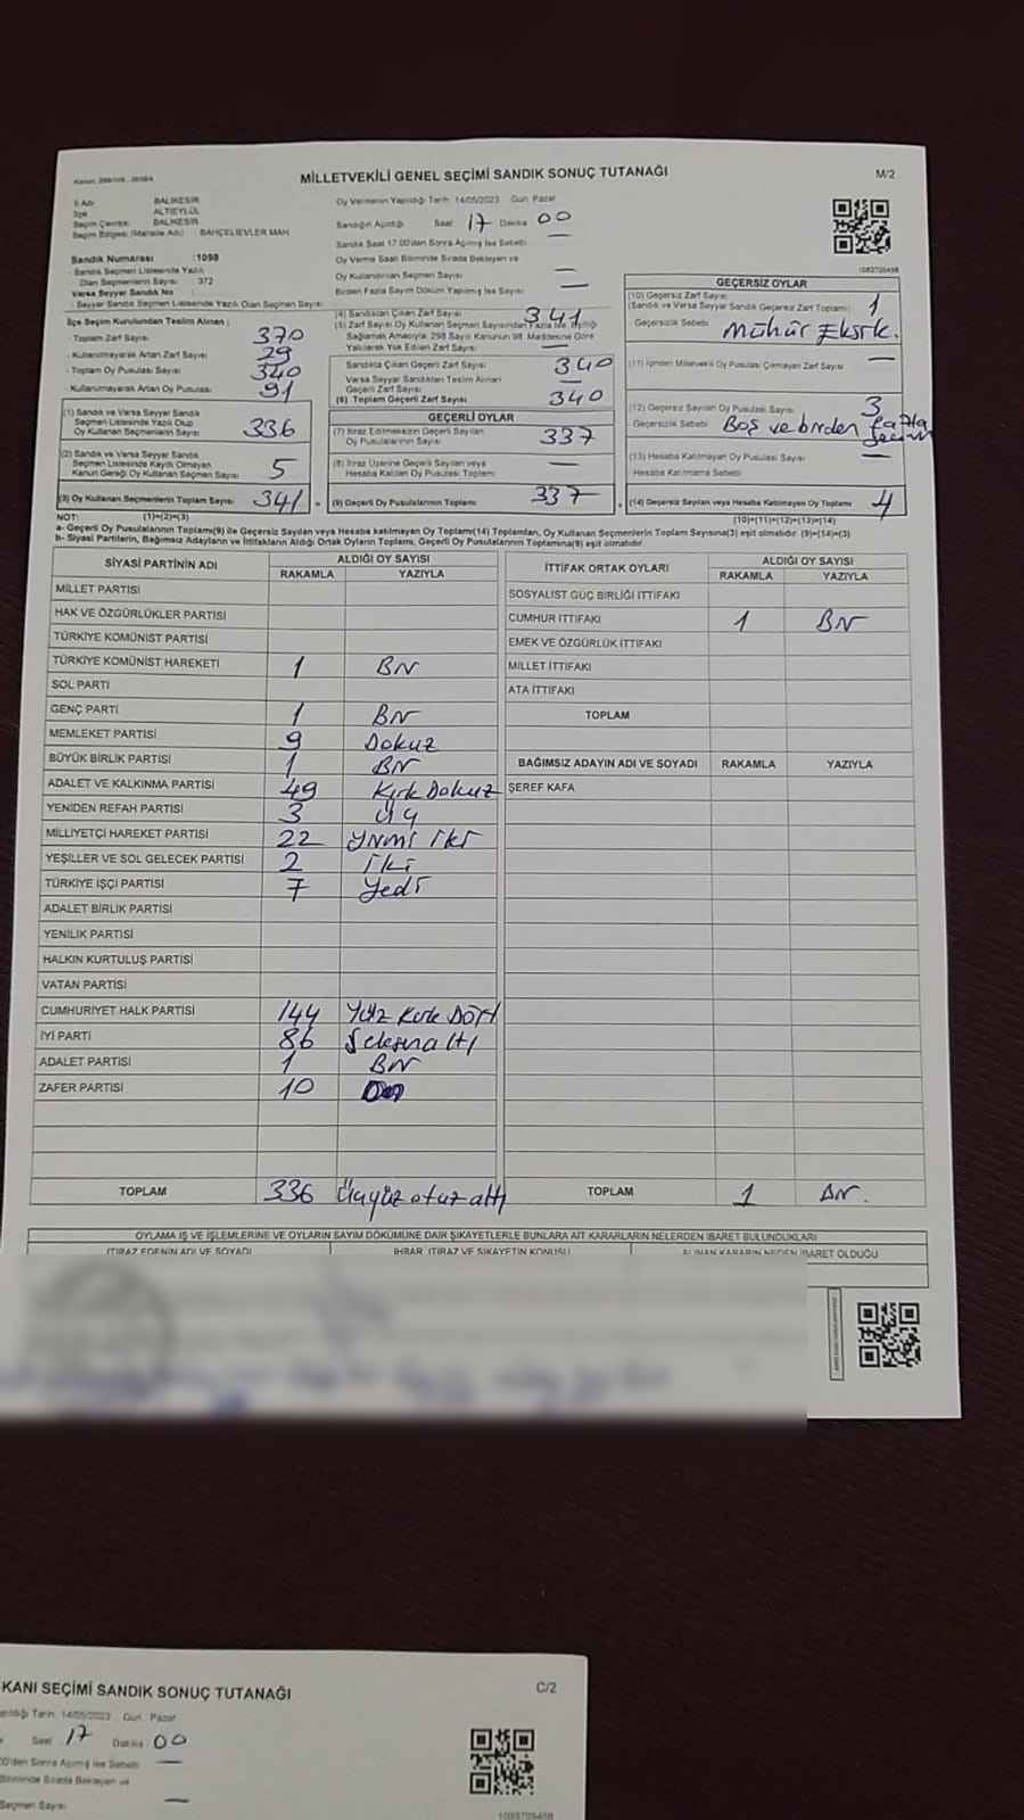 MİLLETVEKİLİ GENEL SEÇİMİ SANDIK SONUÇ TUTANAĞI
M/2
İl Adı BALIKESİR
İlçe ALTIEYLÜL
Seçim Çevresi BALIKESİR
Seçim Bölgesi (Mahalle Adı) BAHÇELİEVLER MAH
Sandık Numarası :1098
Sandık Seçmen Listesinde Yazılı
Olan Seçmenlerin Sayısı 372
Varsa Seyyar Sandık No
Seyyar Sandık Seçmen Listesinde Yazılı Olan Seçmen Sayısı
Oy Vermenin Yapıldığı Tarih 14/05/2023 Gün Pazar
Sandığın Açıldığı Saat 17 Dakika 00
Sandık Saat 17.00'dan Sonra Açılmış İse Sebebi —
Oy Verme Saati Bitiminde Sırada Bekleyen ve
Oy Kullandırılan Seçmen Sayısı —
Birden Fazla Sayım Döküm Yapılmış İse Sayısı —
İlçe Seçim Kurulundan Teslim Alınan :
Toplam Zarf Sayısı 370
- Kullanılmayarak Artan Zarf Sayısı 29
- Toplam Oy Pusulası Sayısı 340
- Kullanılmayarak Artan Oy Pusulası 91
(1) Sandık ve Varsa Seyyar Sandık
Seçmen Listesinde Yazılı Olup
Oy Kullanan Seçmenlerin Sayısı 336
(2) Sandık ve Varsa Seyyar Sandık
Seçmen Listesinde Kayıtlı Olmayan
Kanun Gereği Oy Kullanan Seçmen Sayısı 5
(3) Oy Kullanan Seçmenlerin Toplam Sayısı 341
(1)+(2)=(3)
(4) Sandıktan Çıkan Zarf Sayısı 341
(5) Zarf Sayısı Oy Kullanan Seçmen Sayısından Fazla İse, Eşitliği
Sağlamak Amacıyla 298 Sayılı Kanunun 98. Maddesine Göre
Yakılarak Yok Edilen Zarf Sayısı —
Sandıkta Çıkan Geçerli Zarf Sayısı 340
Varsa Seyyar Sandıktan Teslim Alınan
Geçerli Zarf Sayısı —
(6) Toplam Geçerli Zarf Sayısı 340
GEÇERLİ OYLAR
(7) İtiraz Edilmeksizin Geçerli Sayılan
Oy Pusulalarının Sayısı 337
(8) İtiraz Üzerine Geçerli Sayılan veya
Hesaba Katılan Oy Pusulası Toplamı —
(9) Geçerli Oy Pusulalarının Toplamı 337
GEÇERSİZ OYLAR
(10) Geçersiz Zarf Sayısı
(Sandık ve Varsa Seyyar Sandık Geçersiz Zarf Toplamı) 1
Geçersizlik Sebebi Mühür Eksik.
(11) İçinden Milletvekili Oy Pusulası Çıkmayan Zarf Sayısı —
(12) Geçersiz Sayılan Oy Pusulası Sayısı 3
Geçersizlik Sebebi Boş ve birden fazla
(13) Hesaba Katılmayan Oy Pusulası Sayısı —
Hesaba Katılmama Sebebi
(14) Geçersiz Sayılan veya Hesaba Katılmayan Oy Toplamı 4
(10)+(11)+(12)+(13)=(14)
NOT:
a- Geçerli Oy Pusulalarının Toplamı(9) ile Geçersiz Sayılan veya Hesaba katılmayan Oy Toplam(14) Toplamları, Oy Kullanan Seçmenlerin Toplam Sayısına(3) eşit olmalıdır. (9)+(14)=(3)
b- Siyasi Partilerin, Bağımsız Adayların ve İttifakların Aldığı Ortak Oyların Toplamı, Geçerli Oy Pusulalarının Toplamına(9) eşit olmalıdır.
SİYASİ PARTİNİN ADI ALDIĞI OY SAYISI
RAKAMLA YAZIYLA
MİLLET PARTİSİ
HAK VE ÖZGÜRLÜKLER PARTİSİ
TÜRKİYE KOMÜNİST PARTİSİ
TÜRKİYE KOMÜNİST HAREKETİ 1 BİR
SOL PARTİ
GENÇ PARTİ 1 BİR
MEMLEKET PARTİSİ 9 Dokuz
BÜYÜK BİRLİK PARTİSİ 1 BİR
ADALET VE KALKINMA PARTİSİ 49 Kırk Dokuz
YENİDEN REFAH PARTİSİ 3 Üç
MİLLİYETÇİ HAREKET PARTİSİ 22 Yirmi iki
YEŞİLLER VE SOL GELECEK PARTİSİ 2 İki
TÜRKİYE İŞÇİ PARTİSİ 7 Yedi
ADALET BİRLİK PARTİSİ
YENİLİK PARTİSİ
HALKIN KURTULUŞ PARTİSİ
VATAN PARTİSİ
CUMHURİYET HALK PARTİSİ 144 Yüz Kırk DÖRT
İYİ PARTİ 86 Seksenaltı
ADALET PARTİSİ 1 BİR
ZAFER PARTİSİ 10
TOPLAM 336 Üçyüz otuz altı
İTTİFAK ORTAK OYLARI ALDIĞI OY SAYISI
RAKAMLA YAZIYLA
SOSYALİST GÜÇ BİRLİĞİ İTTİFAKI
CUMHUR İTTİFAKI 1 BİR
EMEK VE ÖZGÜRLÜK İTTİFAKI
MİLLET İTTİFAKI
ATA İTTİFAKI
TOPLAM
BAĞIMSIZ ADAYIN ADI VE SOYADI RAKAMLA YAZIYLA
ŞEREF KAFA
TOPLAM 1 BİR.
OYLAMA İŞ VE İŞLEMLERİNE VE OYLARIN SAYIM DÖKÜMÜNE DAİR ŞİKAYETLERLE BUNLARA AİT KARARLARIN NELERDEN İBARET BULUNDUKLARI
İTİRAZ EDENİN ADI VE SOYADI İHBAR, İTİRAZ VE ŞİKAYETİN KONUSU ALINAN KARARIN NEDEN İBARET OLDUĞU
KANI SEÇİMİ SANDIK SONUÇ TUTANAĞI
C/2
Tarih 14/05/2023 Gün Pazar
Saat 17 Dakika 00
00'dan Sonra Açılmış İse Sebebi —
Bitiminde Sırada Bekleyen ve
Seçmen Sayısı —